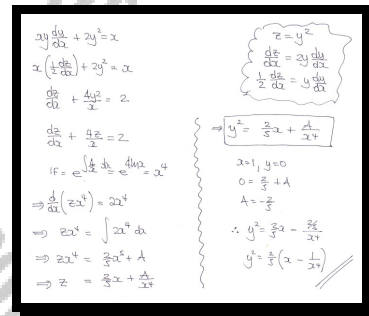 xy dy/dx + 2y² = x
x(½ dz/dx) + 2y² = x
dz/dx + 4y²/x = 2
dz/dx + 4z/x = 2
IF = e^∫4/x dx = e^4lnx = x⁴
⇒ d/dx(zx⁴) = 2x⁴
⇒ zx⁴ = ∫ 2x⁴ dx
⇒ zx⁴ = 2/5 x⁵ + A
⇒ z = 2/5 x + A/x⁴
z = y²
dz/dx = 2y dy/dx
½ dz/dx = y dy/dx
⇒ y² = 2/5 x + A/x⁴
x=1, y=0
0 = 2/5 + A
A = -2/5
∴ y² = 2/5 x - 2/5/x⁴
y² = 2/5 (x - 1/x⁴)